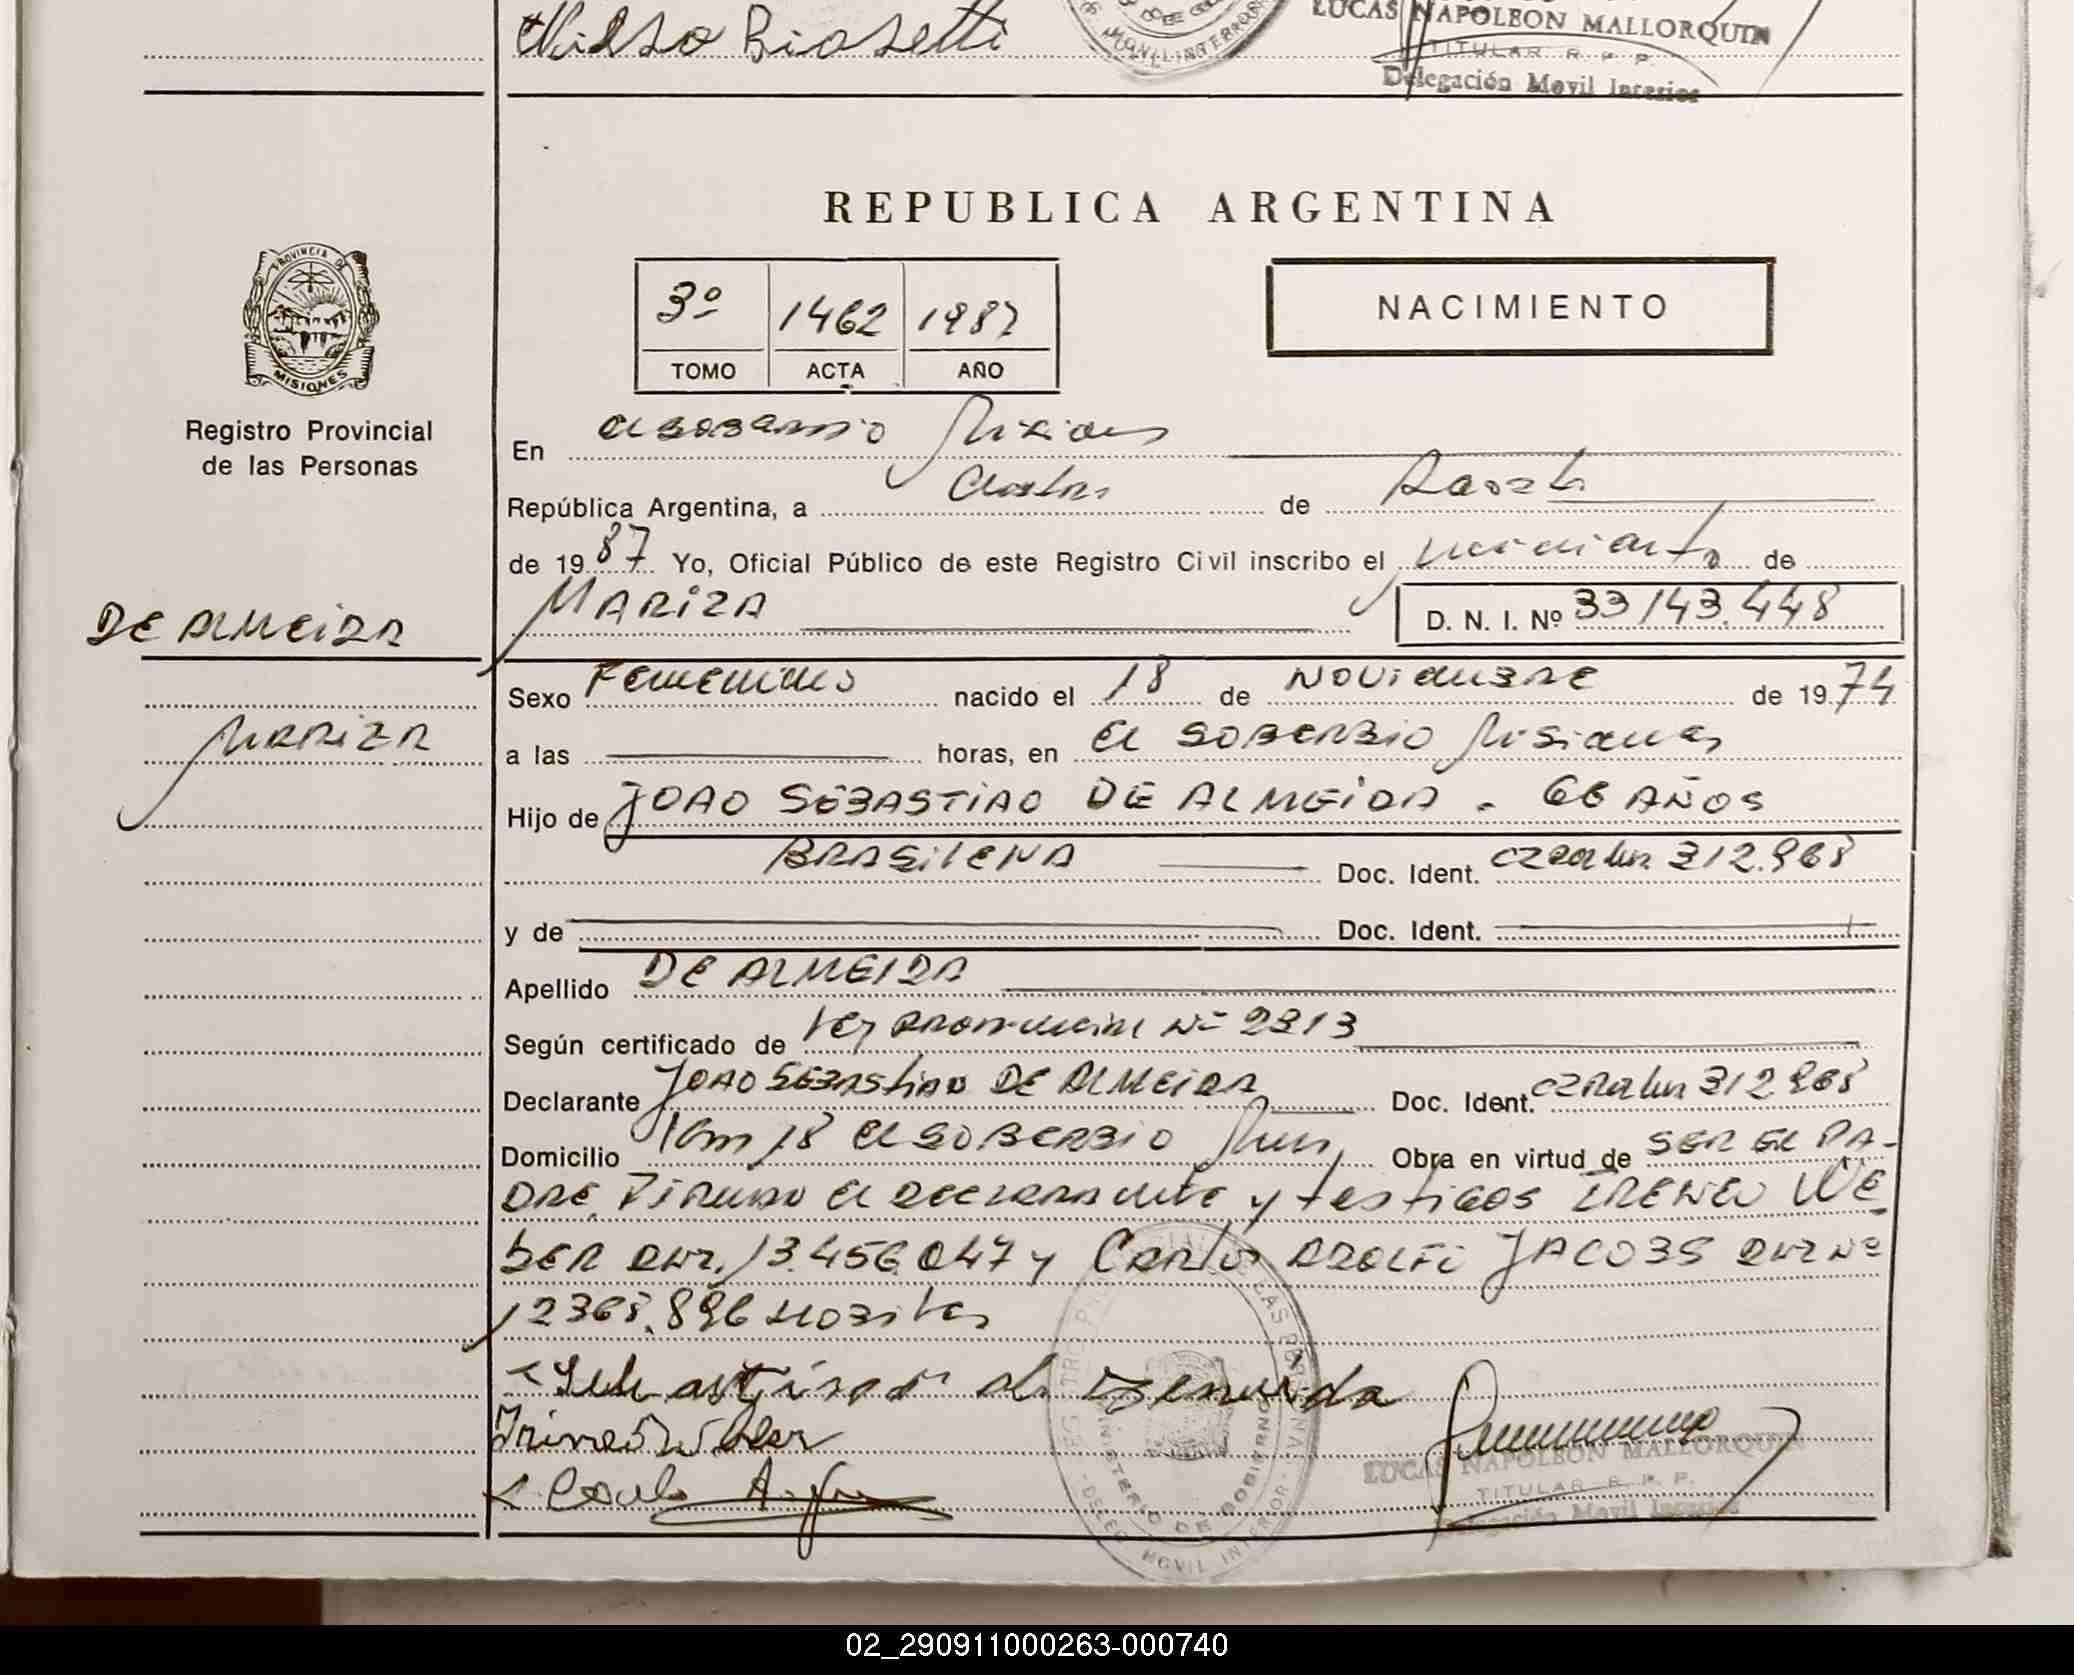 LUCAS NAPOLEON MALLORQUIN
TITULAR R. P. P.
Delegación Movil Interior
REPUBLICA ARGENTINA
PROVINCIA DE
MISIONES
Registro Provincial
de las Personas
3º 1462 1987
TOMO ACTA AÑO
NACIMIENTO
En El Soberbio Misiones
República Argentina, a Catorce de Agosto
de 1987 Yo, Oficial Público de este Registro Civil inscribo el nacimiento de
MARIZA
D. N. I. Nº 33143.448
DE ALMEIDA
MARIZA
Sexo Femenino nacido el 18 de NOVIEMBRE de 1974
a las horas, en El SOBERBIO Misiones
Hijo de JOAO SEBASTIAO DE ALMEIDA. 66 AÑOS
BRASILENA Doc. Ident. 312.968
y de Doc. Ident.
Apellido DE ALMEIDA
Según certificado de Ley Provincial Nº 2313
Declarante JOAO SEBASTIAO DE ALMEIDA Doc. Ident. 312968
Domicilio Km 18 El SOBERBIO Mnes Obra en virtud de SER EL PA-
DRE. Firman el declarante y testigos IRENEO WE
BER DNI. 13.456.047 y Carlos ADOLFO JACOBS DNI Nº
12368.896
LUCAS NAPOLEON MALLORQUIN
TITULAR R. P. P.
Delegación Movil Interior
REGISTRO PROVINCIAL DE LAS PERSONAS
MINISTERIO DE GOBIERNO
DELEG. MOVIL INTERIOR
02_290911000263-000740